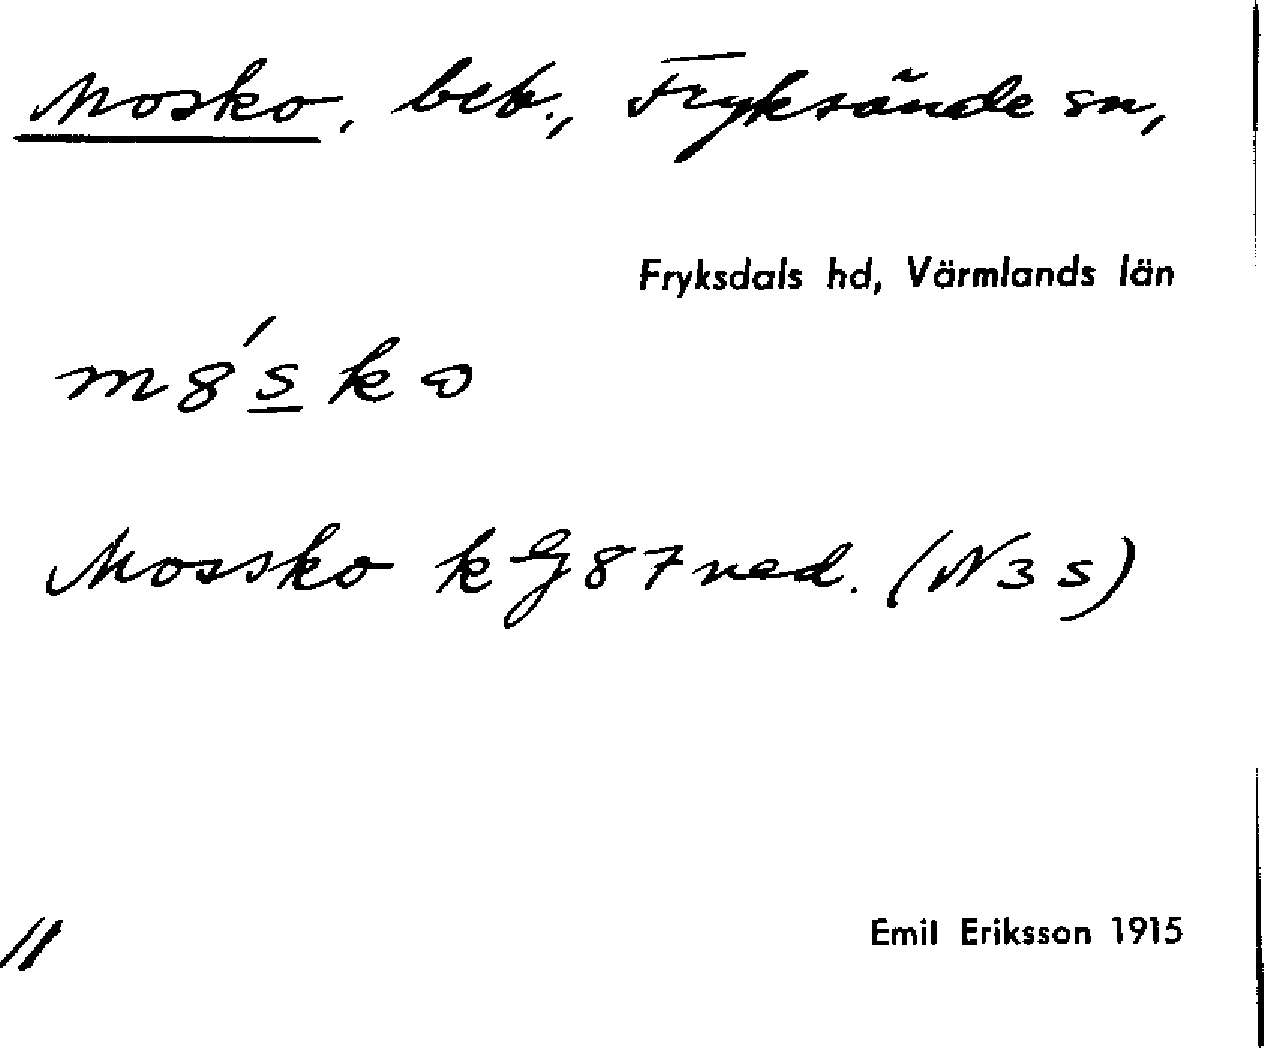 Mosko, beb., Fryksände sn,
Fryksdals hd, Värmlands län
m8́s̲ko
Mossko kg 87 ned. (N3s)
11
Emil Eriksson 1915